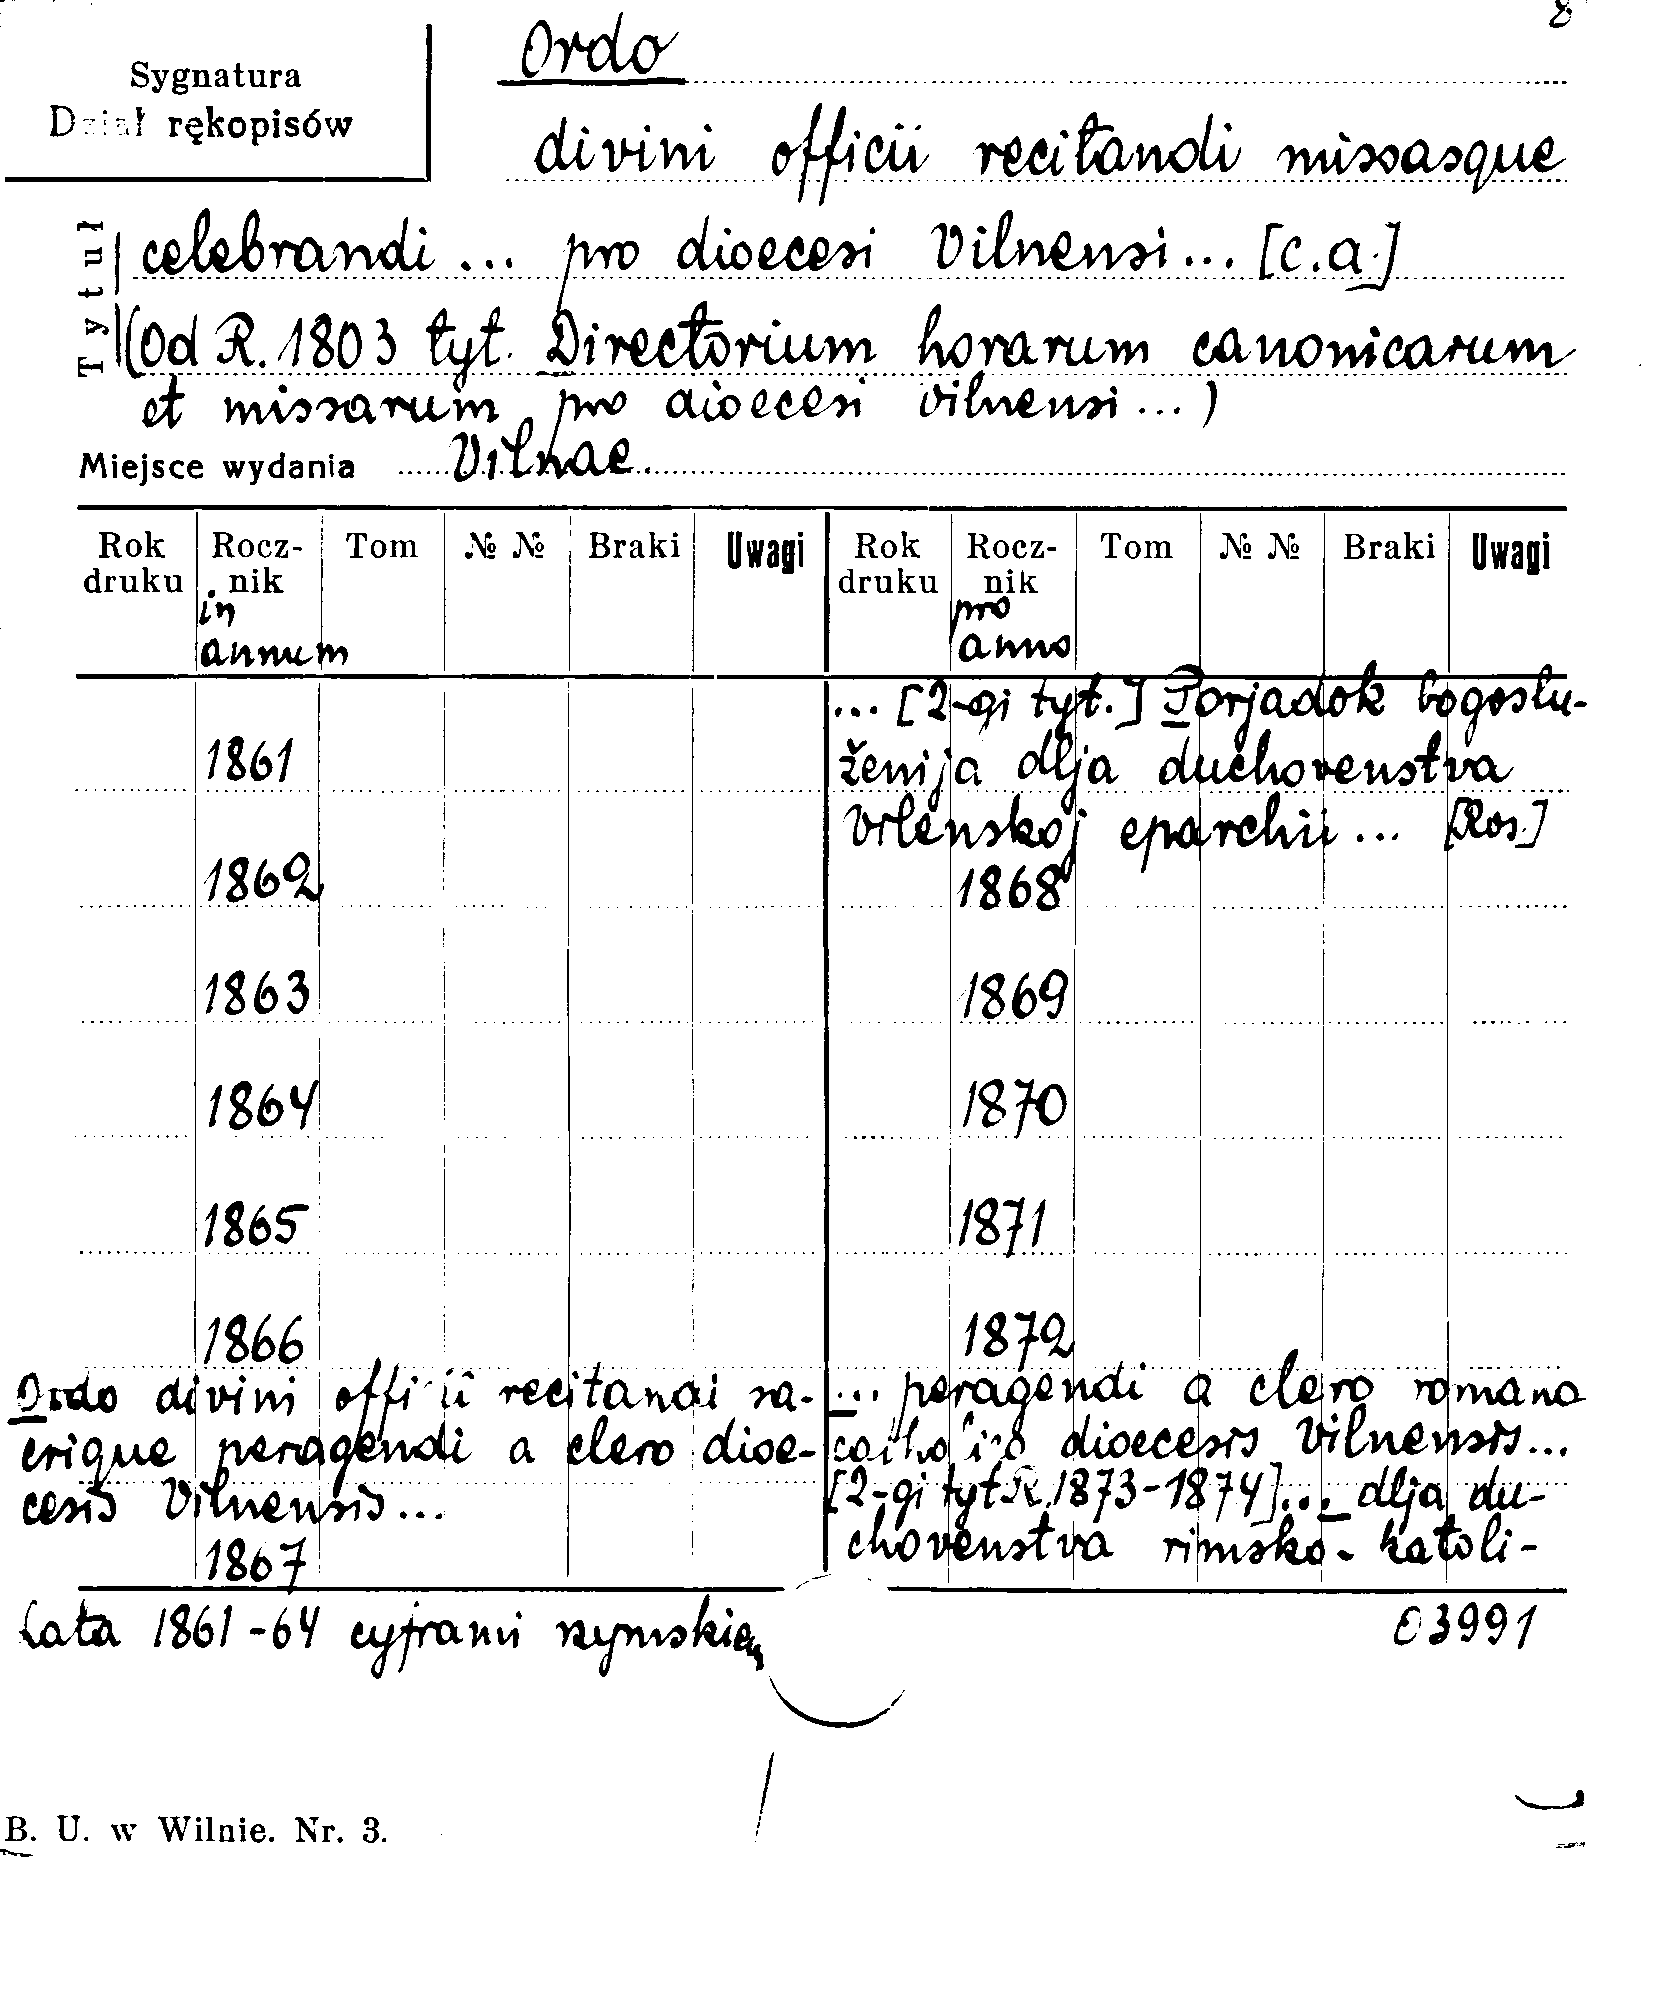 8
Ordo
Sygnatura
Dział rękopisów
divini officii recitandi missasque
Tytuł
celebrandi ... pro dioecesi Vilnensi ... [c.a.]
(Od R. 1803 tyt. Directorium horarum canonicarum
et missarum pro dioecesi vilnensi ... )
Miejsce wydania Vilnae.
Rok druku Rocz-nik Tom № № Braki Uwagi Rok druku Rocz-nik Tom № № Braki Uwagi
in annum pro anno
... [2-gi tyt.] Porjadok bogoslu-
1861 ženija dlja duchovenstva
Vilenskoj eparchii ... [Ros.]
1862 1868
1863 1869
1864 1870
1865 1871
1866 1872
Ordo divini officii recitandi sa- ... peragendi a clero romano
crique peragendi a clero dioe- catholico dioecesis Vilnensis...
cesis Vilnensis ... [2-gi tyt. R. 1873-1874] ... dlja du-
1867 chovenstva rimsko-katoli-
Lata 1861-64 cyframi rzymskiem
03991
B. U. w Wilnie. Nr. 3.